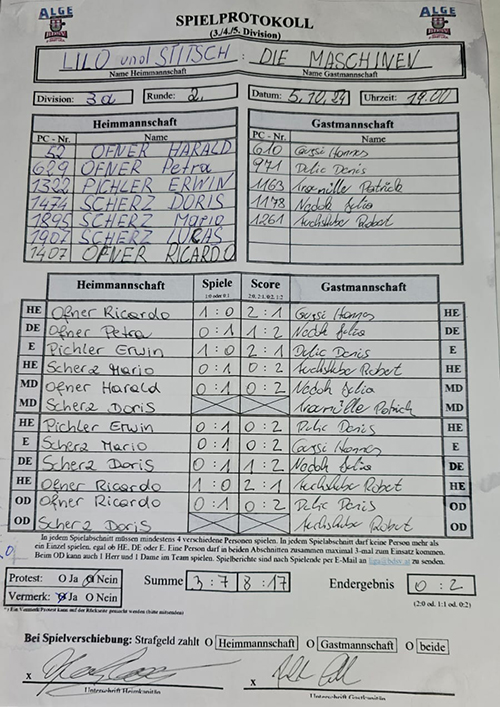 ALGE
SPIELPROTOKOLL
ALGE
(3./4./5. Division)
LILO und STITSCH : DIE MASCHINEN
Name Heimmannschaft Name Gastmannschaft
Division: 3a Runde: 2. Datum: 5.10.24 Uhrzeit: 19.00
Heimmannschaft Gastmannschaft
PC - Nr. Name PC - Nr. Name
52 OFNER HARALD 610 Gussi Hannes
629 OFNER Petra 971 Delic Denis
1322 PICHLER ERWIN 1163 Patrick
1474 SCHERZ DORIS 1178 Nadoh Julia
1895 SCHERZ Mario 1261 Robert
1907 SCHERZ LUCAS
1407 OFNER RICARDO
Heimmannschaft Spiele Score Gastmannschaft
1:0 oder 0:1 2:0, 2:1, 0:2, 1:2
HE Ofner Ricardo 1:0 2:1 Gussi Hannes HE
DE Ofner Petra 0:1 1:2 Nadoh Julia DE
E Pichler Erwin 1:0 2:1 Delic Denis E
HE Scherz Mario 0:1 0:2 Robert HE
MD Ofner Harald 0:1 0:2 Nadoh Julia MD
MD Scherz Doris Patrick MD
HE Pichler Erwin 0:1 0:2 Delic Denis HE
E Scherz Mario 0:1 0:2 Gussi Hannes E
DE Scherz Doris 0:1 1:2 Nadoh Julia DE
HE Ofner Ricardo 1:0 2:1 Robert HE
OD Ofner Ricardo 0:1 0:2 Delic Denis OD
OD Scherz Doris Robert OD
In jedem Spielabschnitt müssen mindestens 4 verschiedene Personen spielen. In jedem Spielabschnitt darf keine Person mehr als
ein Einzel spielen, egal ob HE, DE oder E. Eine Person darf in beiden Abschnitten zusammen maximal 3-mal zum Einsatz kommen.
Beim OD kann auch 1 Herr und 1 Dame im Team spielen. Spielberichte sind nach Spielende per E-Mail an zu senden.
Protest: O Ja O Nein Summe 3:7 8:17 Endergebnis 0:2
Vermerk: O Ja O Nein (2:0 od. 1:1 od. 0:2)
*) Ein Vermerk/Protest kann auf der Rückseite gemacht werden (bitte ankreuzen)
Bei Spielverschiebung: Strafgeld zahlt O Heimmannschaft O Gastmannschaft O beide
x x
Unterschrift Heimkapitän Unterschrift Gastkapitän